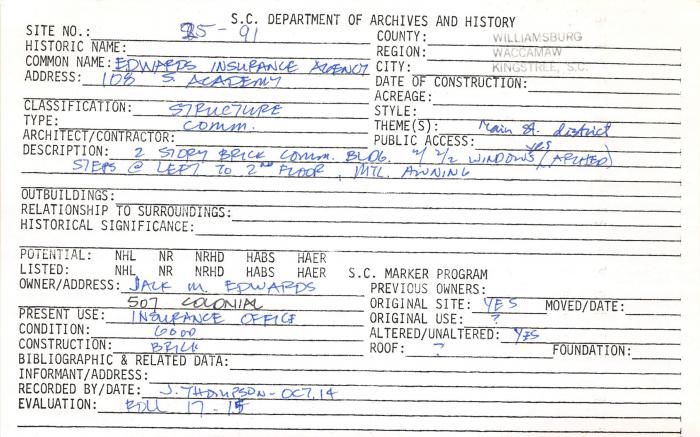 S.C. DEPARTMENT OF ARCHIVES AND HISTORY
SITE NO.: 25-91
COUNTY: WILLIAMSBURG
HISTORIC NAME:
REGION: WACCAMAW
COMMON NAME: EDWARDS INSURANCE AGENCY
CITY: KINGSTREE, S.C.
ADDRESS: 108 S. ACADEMY
DATE OF CONSTRUCTION:
ACREAGE:
CLASSIFICATION: STRUCTURE
STYLE:
TYPE: COMM.
THEME(S): Main St. district
ARCHITECT/CONTRACTOR:
PUBLIC ACCESS: yes
DESCRIPTION: 2 STORY BRICK COMM. BLDG. W/ 2/2 WINDOWS (ARCHED)
STEPS @ LEFT TO 2ND FLOOR, MTL. AWNING
OUTBUILDINGS:
RELATIONSHIP TO SURROUNDINGS:
HISTORICAL SIGNIFICANCE:
POTENTIAL: NHL NR NRHD HABS HAER
LISTED: NHL NR NRHD HABS HAER S.C. MARKER PROGRAM
OWNER/ADDRESS: JACK M. EDWARDS
PREVIOUS OWNERS:
507 COLONIAL
ORIGINAL SITE: YES MOVED/DATE:
PRESENT USE: INSURANCE OFFICE
ORIGINAL USE: ?
CONDITION: GOOD
ALTERED/UNALTERED: YES
CONSTRUCTION: BRICK
ROOF: ? FOUNDATION:
BIBLIOGRAPHIC & RELATED DATA:
INFORMANT/ADDRESS:
RECORDED BY/DATE: J. THOMPSON - OCT. 14
EVALUATION: ROLL 17-15